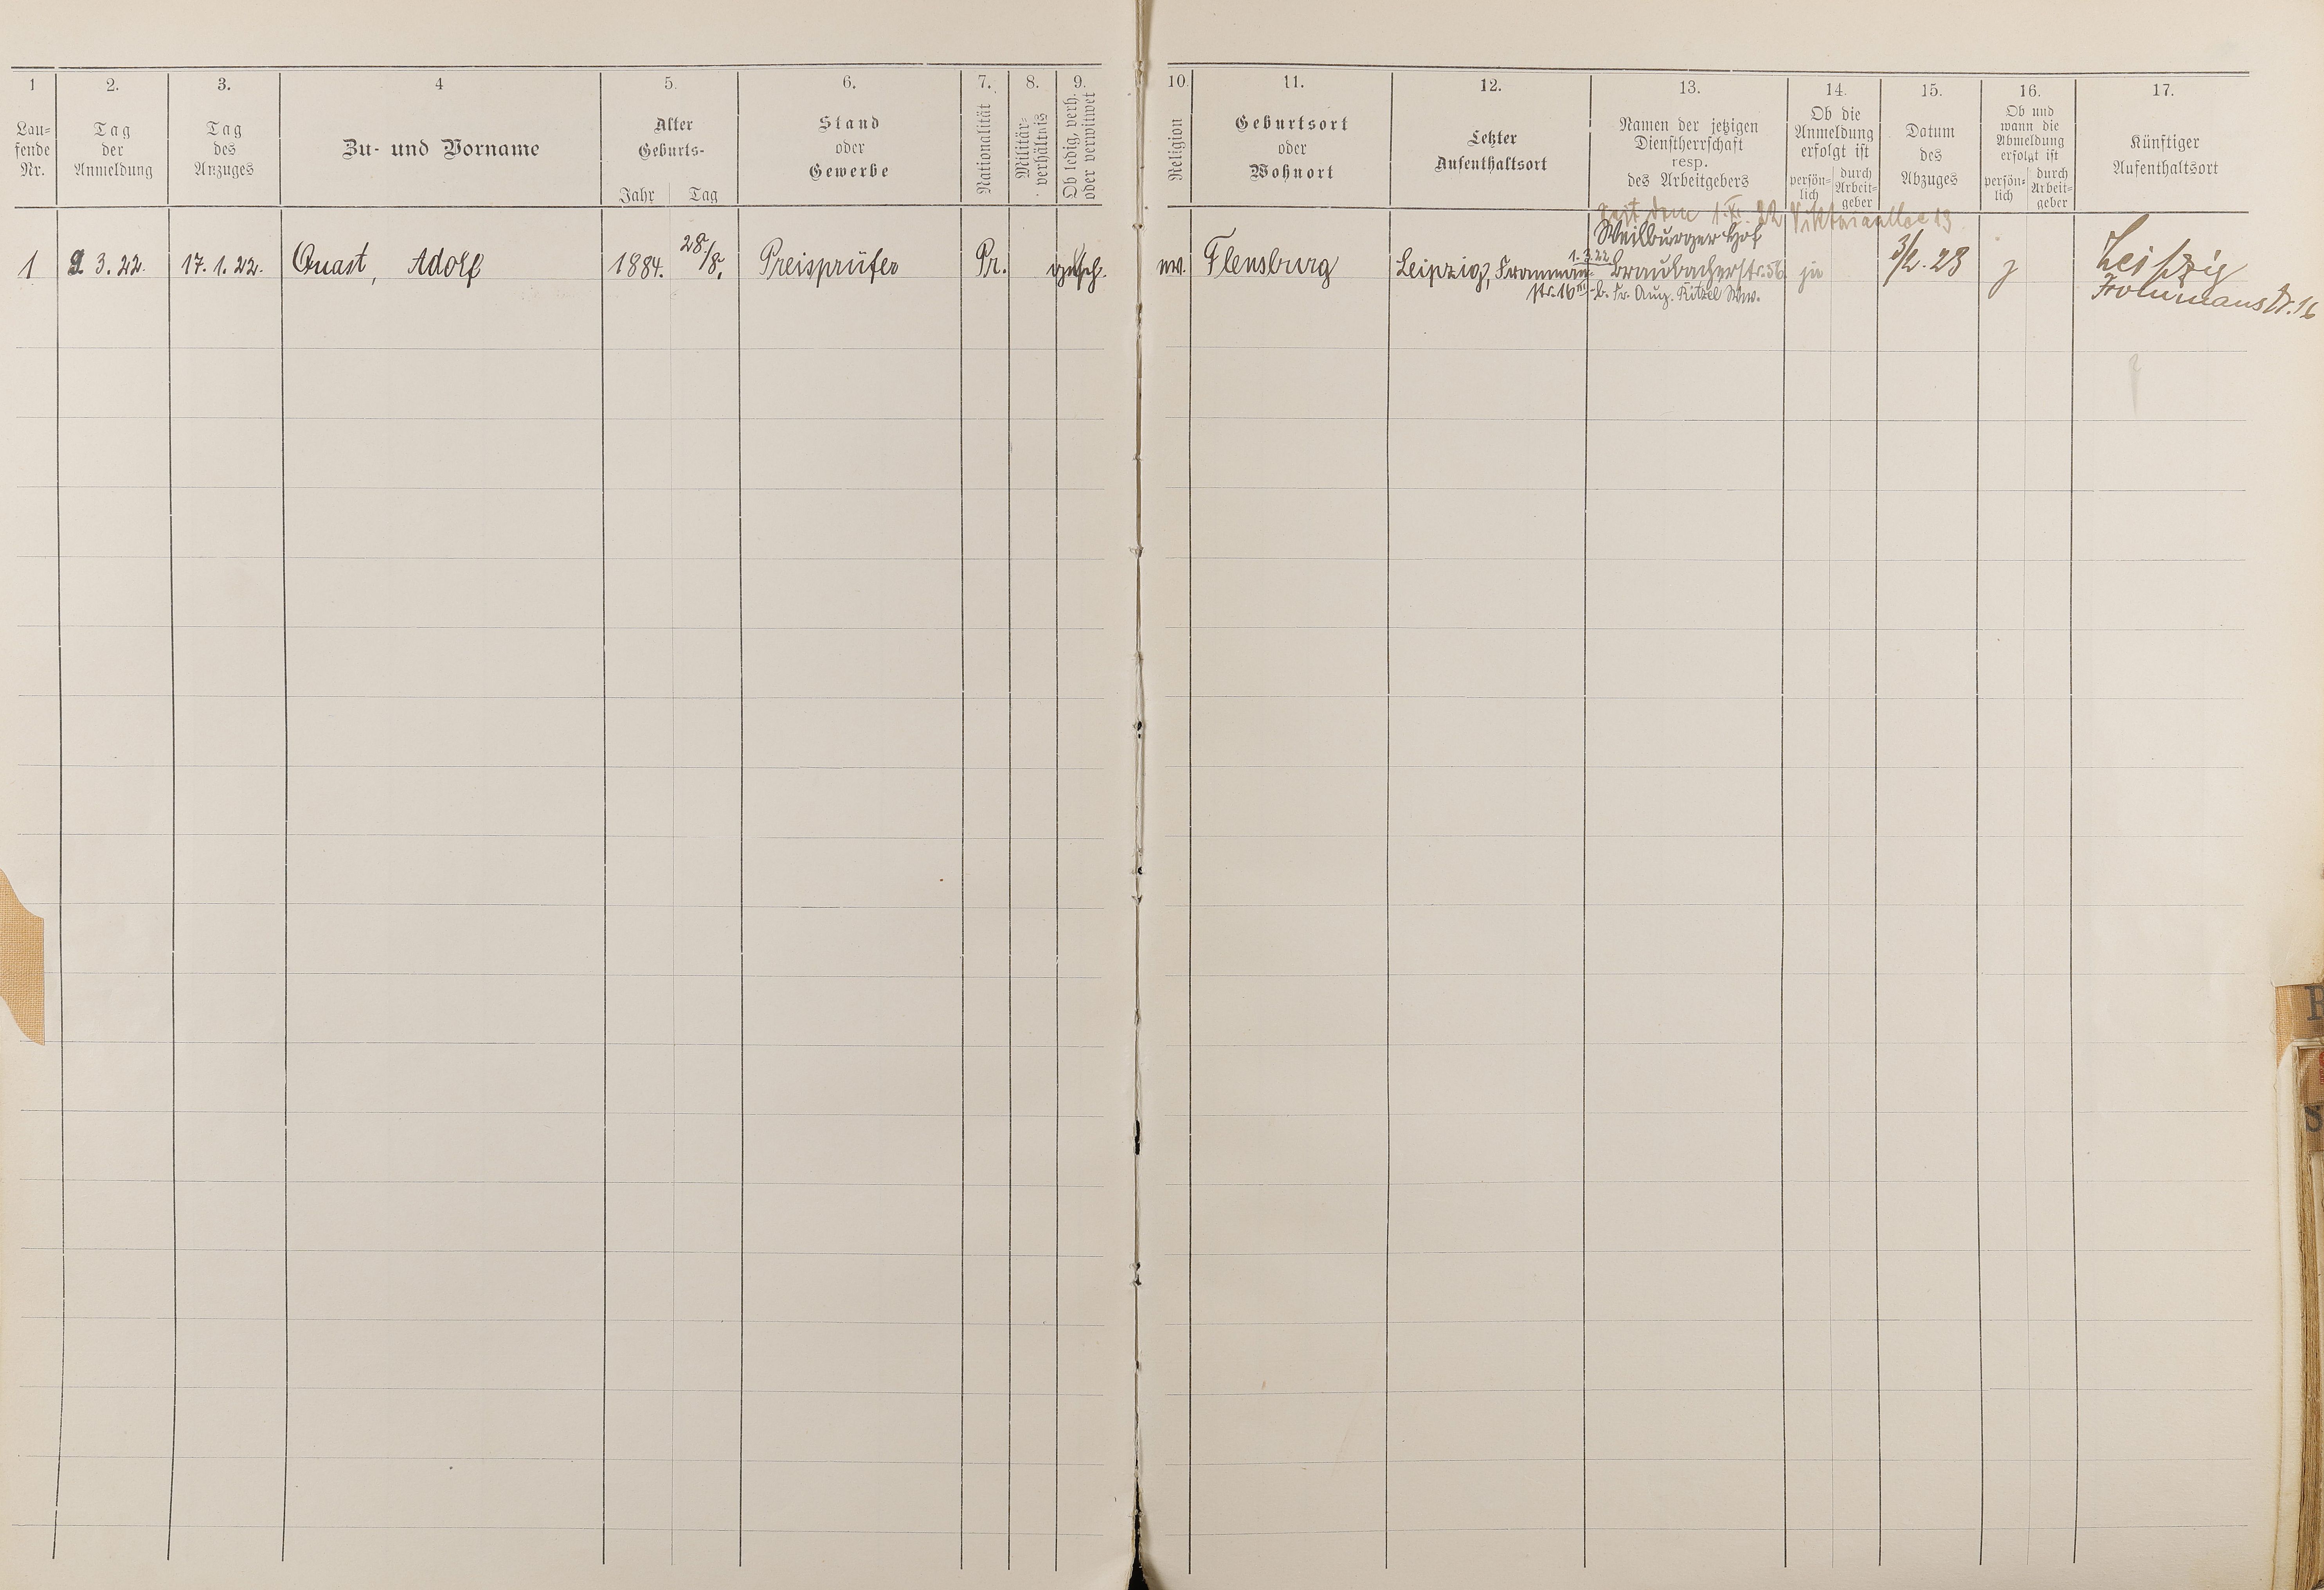 1 2. 3. 4 5. 6. 7. 8. 9. 10. 11. 12. 13. 14. 15. 16. 17.
Lau-
fende
Nr.
Tag
der
Anmeldung
Tag
des
Anzuges
Zu- und Vorname
Alter
Geburts-
Jahr Tag
Stand
oder
Gewerbe
Nationalität
Militär-
verhältnis
Ob ledig, verh.
oder verwitwet
Religion
Geburtsort
oder
Wohnort
Letzter
Aufenthaltsort
Namen der jetzigen
Dienstherrschaft
resp.
des Arbeitgebers
Ob die
Anmeldung
erfolgt ist
persön-
lich
durch
Arbeit-
geber
Datum
des
Abzuges
Ob und
wann die
Abmeldung
erfolgt ist
persön-
lich
durch
Arbeit-
geber
Künftiger
Aufenthaltsort
seit dem 1. XI. 22 Viktoriaallee 13
Weilburger Hof
1 2. 3. 22. 17. 1. 22. Quast, Adolf 1884. 28/8. Preisprüfer Pr. gesch. ev. Flensburg Leipzig, 1.3.22 Braubacherstr. 56 ja 3/2. 23 j Leipzig
str. 16 III b. Fr. Aug. Kitzel Ww.